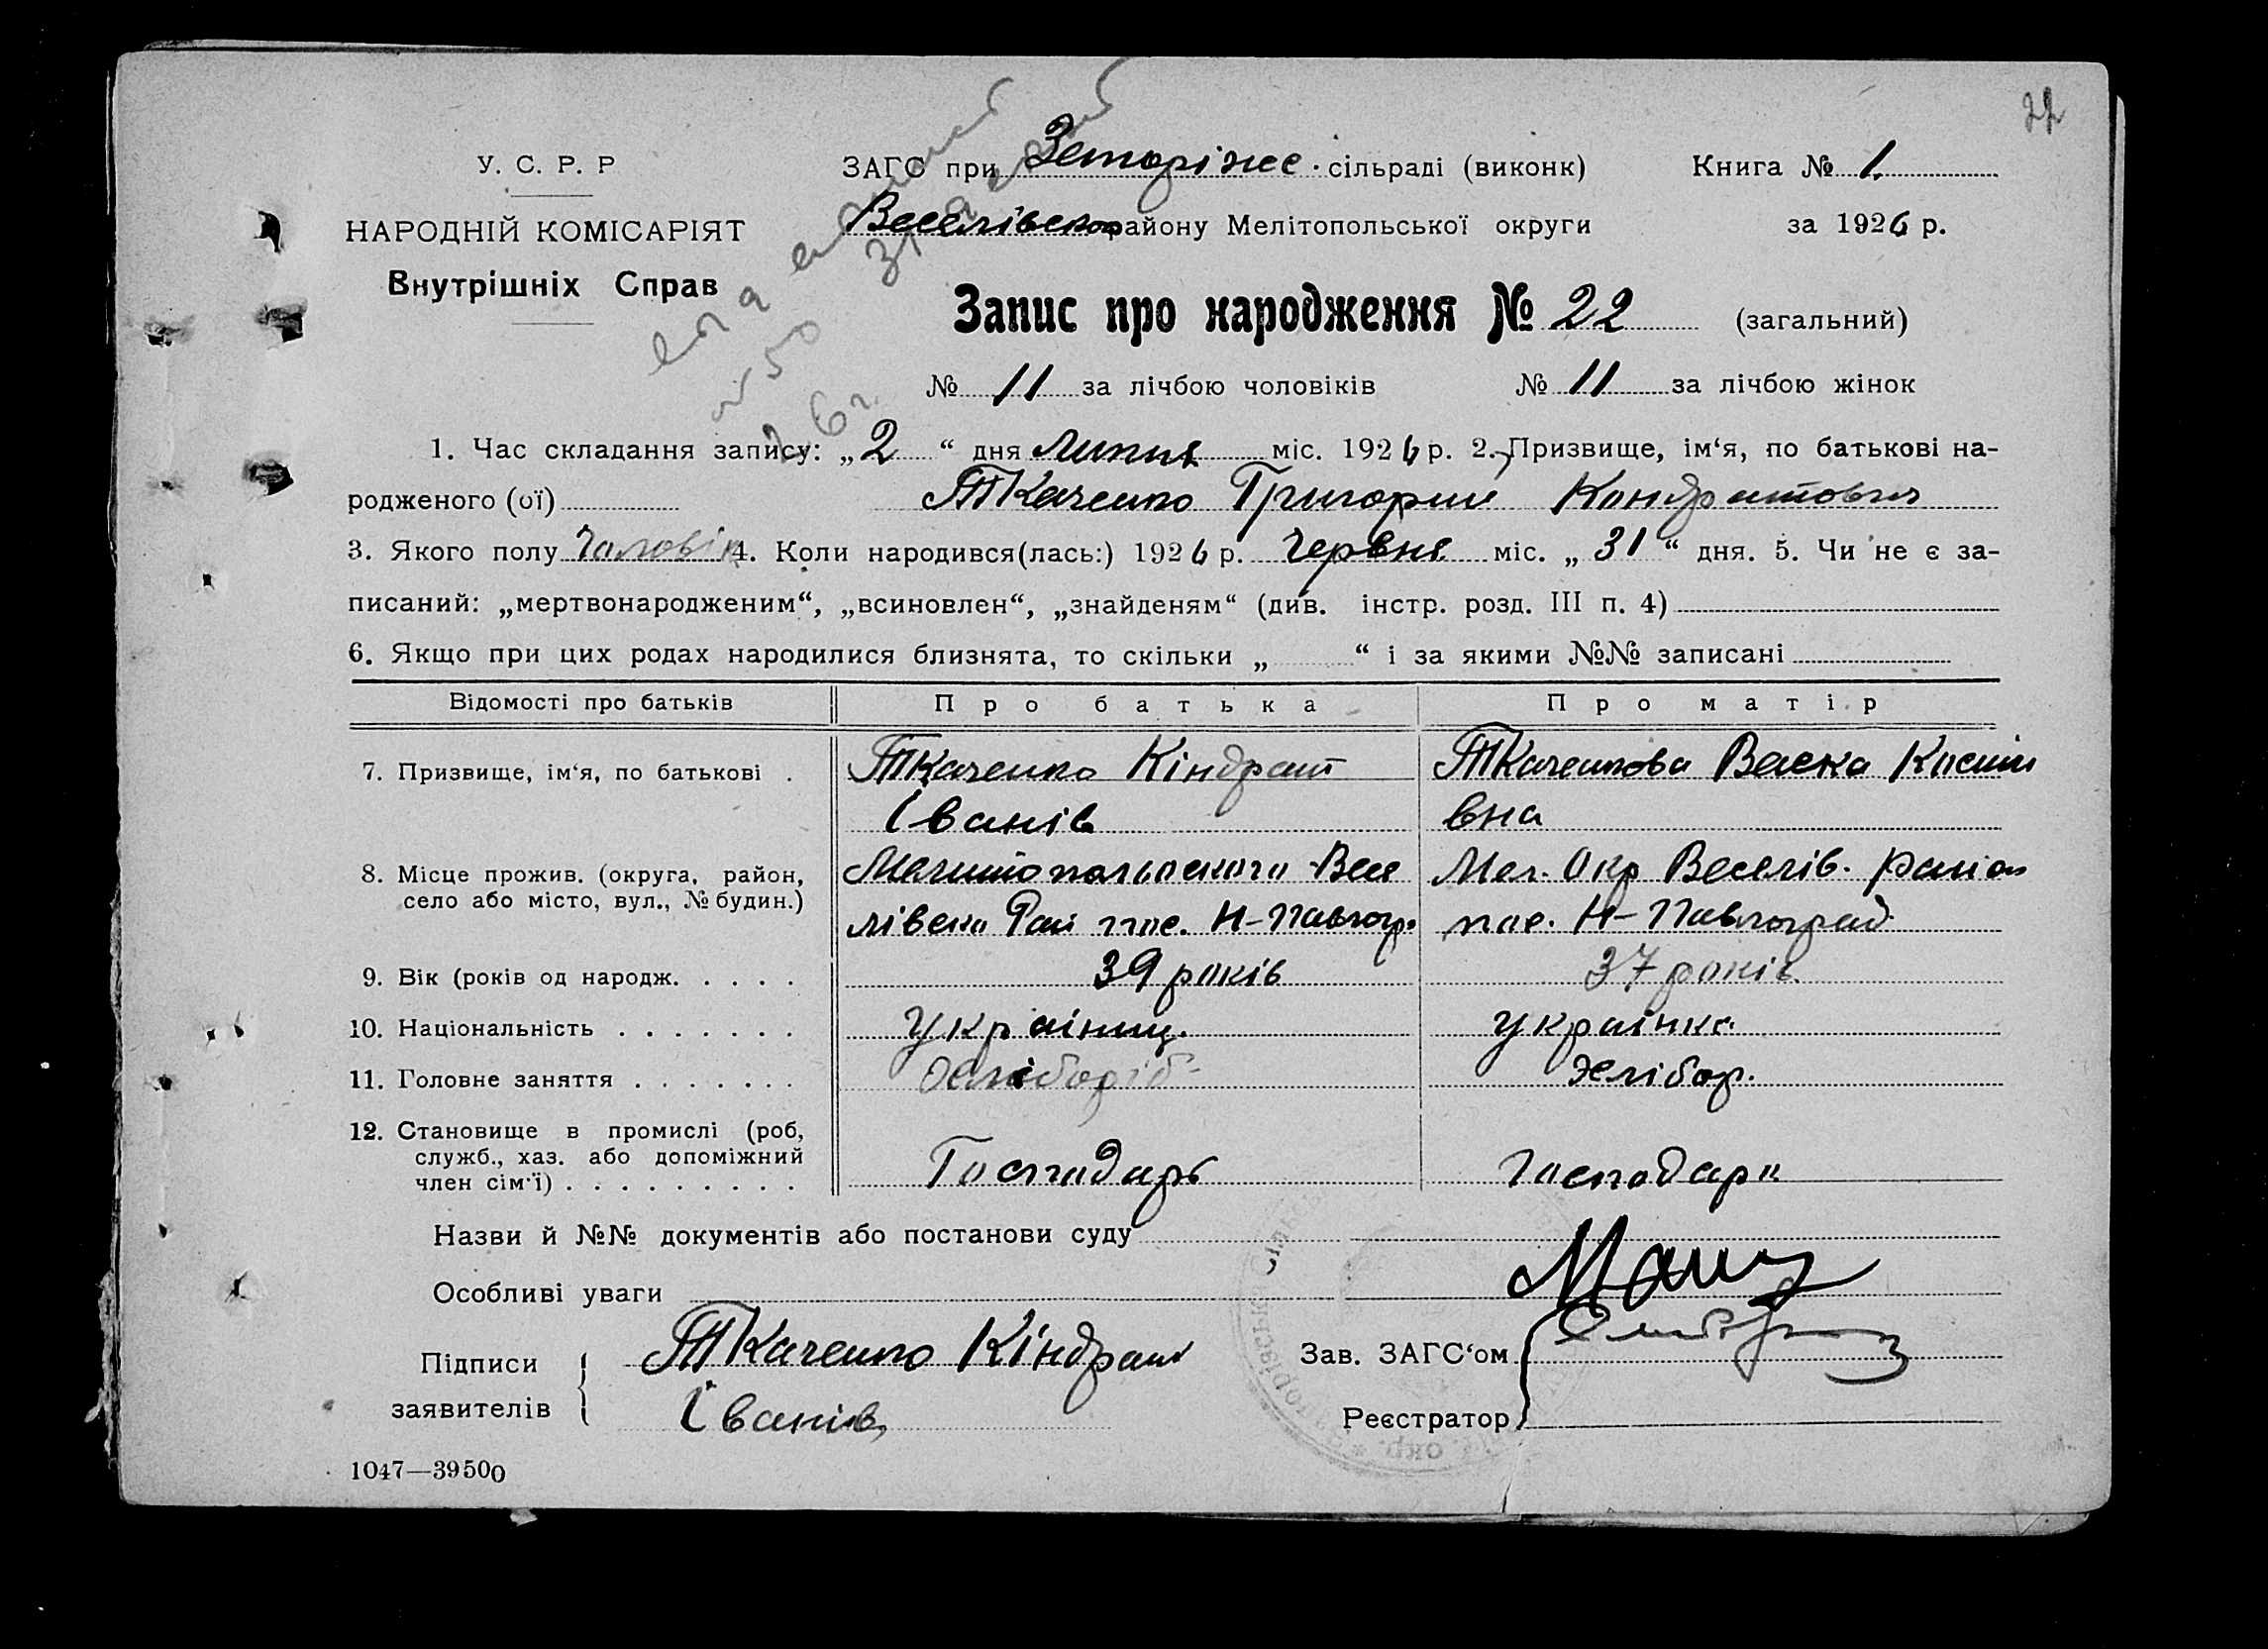 22
У. С. Р. Р
НАРОДНІЙ КОМІСАРІЯТ
Внутрішніх Справ
ЗАГС при сільраді (виконк)
Веселівського району Мелітопольської округи
Книга № 1.
за 1926 р.
Запис про народження № 22 (загальний)
№ 11 за лічбою чоловіків № 11 за лічбою жінок
1. Час складання запису: „2“ дня Липня міс. 1926 р. 2. Призвище, ім‘я, по батькові на-
родженого (ої) Ткаченко Григорий Кондратович
3. Якого полу Чоловік 4. Коли народився(лась:) 1926 р. Червня міс. „31“ дня. 5. Чи не є за-
писаний: „мертвонародженим“, „всиновлен“, „знайденям“ (див. інстр. розд. III п. 4)
6. Якщо при цих родах народилися близнята, то скільки „ “ і за якими №№ записані
Відомості про батьків Про батька Про матір
7. Призвище, ім‘я, по батькові . Ткаченко Кіндрат Ткаченкова Васка
Іванів вна
8. Місце прожив. (округа, район, Мелитопольского Весе Мел. Окр Веселів. район
село або місто, вул., № будин.) лівско Рай пос. Н-Павлогр. пос. Н-Павлоград
9. Вік (років од народж. . . . . 39 років 37 років
10. Національність . . . . . . . Українец. Українка
11. Головне заняття . . . . . . . Хлібороб Хлібор.
12. Становище в промислі (роб,
служб., хаз. або допоміжний Господарь Господарк
член сім‘ї) . . . . . . . . .
Назви й №№ документів або постанови суду
Особливі уваги
Підписи Ткаченко Кіндрат
заявителів Іванів
Зав. ЗАГС‘ом
Реєстратор
1047—39500